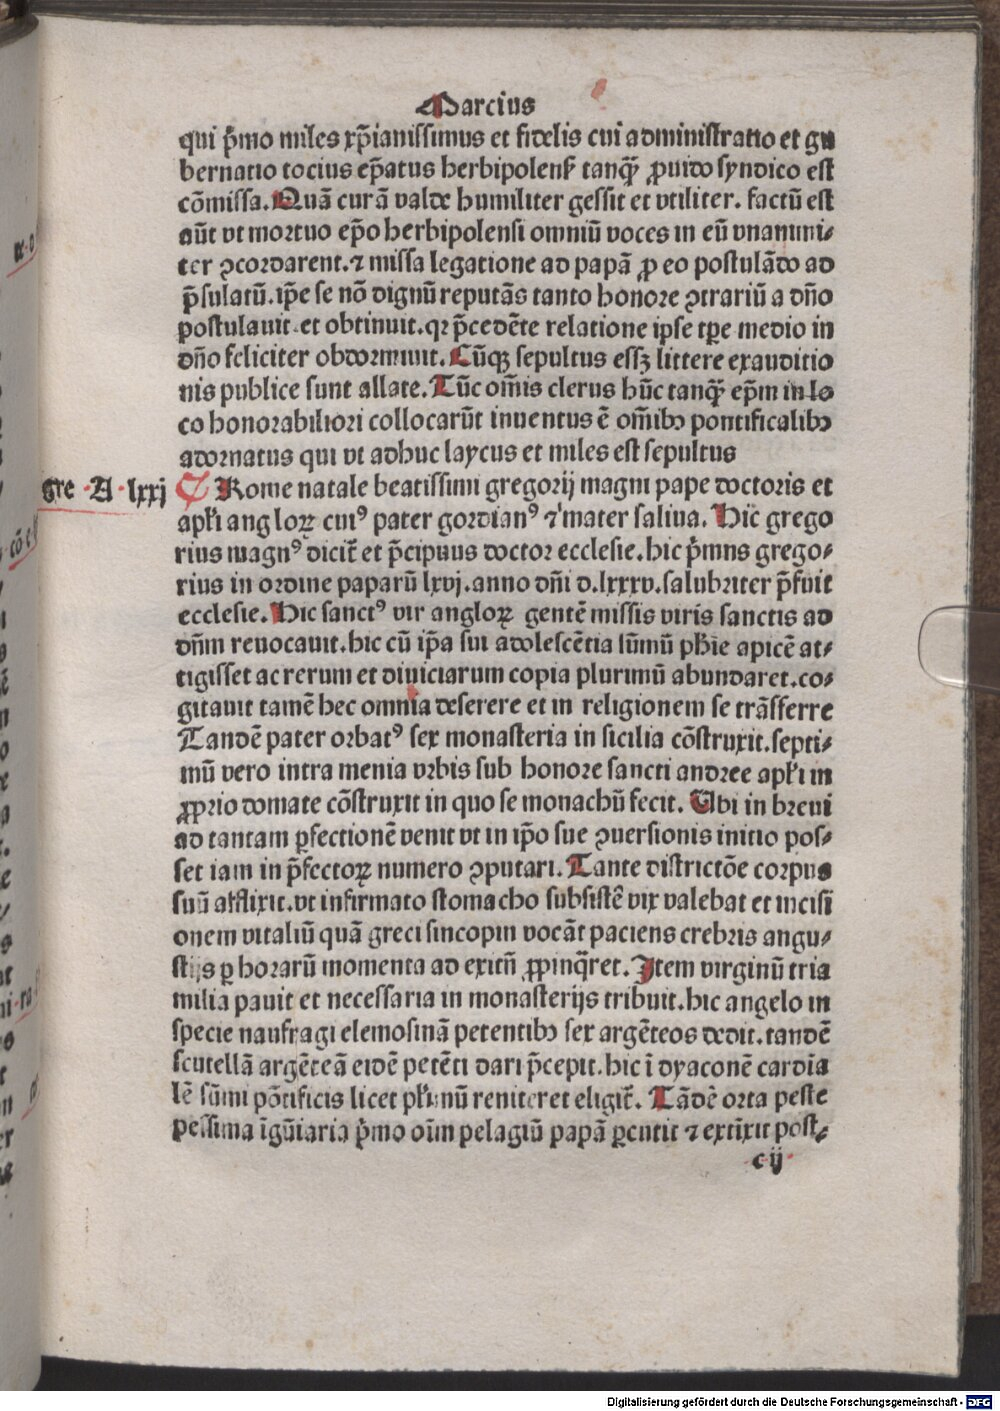 Marcius
qui p̄mo miles xp̄ianissimus et fidelis cui administratio et gu
bernatio tocius ep̄atus herbipolensꝭ tanqᷓ ꝓuido syndico est
cōmissa. Quā curā valde humiliter gessit et vtiliter. factū est
aūt vt mortuo ep̄o herbipolensi omniū voces in eū vnanimi⸗
ter ꝯcordarent. ⁊ missa legatione ad papā ꝓ eo postulādo ad
p̄sulatū. ip̄e se nō dignū reputās tanto honore ꝯtrariū a dn̄o
postulauit. et obtinuit. qꝛ p̄cedēte relatione ipse tp̄e medio in
dn̄o feliciter obdormiuit. Cūqꝫ sepultus essꝫ littere exauditio
nis publice sunt allate. Tūc om̄is clerus hūc tanqᷓ ep̄m in lo
co honorabiliori collocarūt inuentus ē om̄ibꝰ pontificalibꝰ
adornatus qui vt adhuc laycus et miles est sepultus
gre · A · lxxj
Rome natale beatissimi gregorij magni pape doctoris et
apl̓i angloꝝ cuiꝰ pater gordianꝰ ⁊ mater saluia. Hic grego
rius magnꝰ dicit̄ et p̄cipuus doctor ecclesie. hic p̄mus grego⸗
rius in ordine paparū lxvj. anno dn̄i d.lxxxv. salubriter p̄fuit
ecclesie. Hic sanctꝰ vir angloꝝ gentē missis viris sanctis ad
dn̄m reuocauit. hic cū ip̄a sui adolescētia sūmū ph̄ie apicē at⸗
tigisset ac rerum et diuiciarum copia plurimū abundaret. co⸗
gitauit tamē hec omnia deserere et in religionem se trāsferre
Tandē pater orbatꝰ sex monasteria in sicilia cōstruxit. septi⸗
mū vero intra menia vrbis sub honore sancti andree apl̓i in
ꝓprio domate cōstruxit in quo se monachū fecit. Ubi in breui
ad tantam ꝑfectionē venit vt in ip̄o sue ꝯuersionis initio pos⸗
set iam in p̄fectoꝝ numero ꝯputari. Tante districtōe corpus
suū afflixit. vt infirmato stomacho subsistē vix valebat et incisi
onem vitaliū quā greci sincopin vocāt paciens crebris angu⸗
stijs ꝑ horarū momenta ad exitū ꝓpinq̄ret. Item virginū tria
milia pauit et necessaria in monasterijs tribuit. hic angelo in
specie naufragi elemosinā petentibꝰ sex argēteos dedit. tandē
scutellā argēteā eidē petēti dari p̄cepit. hic ī dyaconē cardia
lē sūmi pōtificis licet pl̓imū reniteret eligit̄. Tādē orta peste
pessima īgūiaria p̄mo oīm pelagiū papā ꝑcutit ⁊ extīxit post⸗
c ij